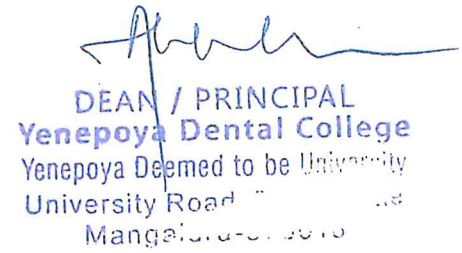 DEAN / PRINCIPAL
Yenepoya Dental College
Yenepoya Deemed to be University
University Road